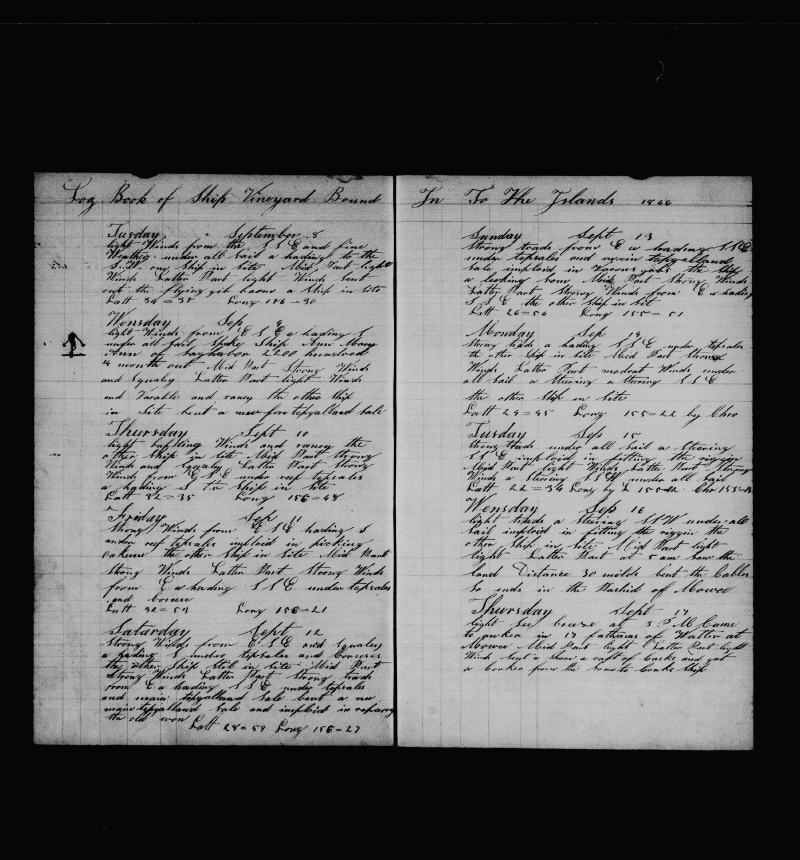 Log Book of Ship Vineyard Bound
Tusday September 8
light Winds from the S S E and fine
Weather under all Sail a hading to the
S.W. one Ship in Site Mid Part light
Winds Latter Part light Winds Sent
out the flying gib boom a Ship in Site
Latt 34 = 35 Long 156 - 30
Wensday Sep 9
light Winds from E S E a hading S
under all Sail, Spoke Ship Ann Mary
Ann of Sagharbor 2200 hundred
month out Mid Part Strong Winds
and Squaley Latter Part light Winds
and Varable and raney the other Ship
in Site bent a new foretopgalland Sale
Thursday Sept 10
light bafling Winds and raney the
other Ship in Site Mid Part Strong
Winds and Squaley Latter Part Strong
Winds from E S E under reef topsales
a hading S the Ship in Site
Latt 32 = 35 Long 156 = 48
Friday Sep 11
Strong Winds from E S E hading S
under reef topsales imploid in picking
oakum the other Ship in Site Mid Part
Strong Winds Latter Part Strong Winds
from E a hading S S E under topsales
and Corses
Latt 30 = 59 Long 156 - 21
Saturday Sept 12
Strong Winds from E S E and Squaley
a hading S under topsales and Corses
the other Ship Stil in Site Mid Part
Strong Winds Latter Part Strong trads
from E a hading S S E under topsales
and main topgalland Sale bent a nu
main topgalland Sale and imploid in reparing
the old won Latt 28 = 59 Long 156 - 27
In To The Islands
Sunday Sept 13
Strong trads from E a hading S S E
under topsales and main topgalland
Sale imploid in Varous jobs the Ship
a leaking Som Mid Part Strong Winds
Latter Part Strong Winds from E a hading
S S E the other Ship in Sit
Latt 26 = 50 Long 155 = 51
Monday Sep 14
Strong trads a hading S S E under topsales
the other Ship in Site Mid Part Strong
Winds Latter Part modrat Winds under
all Sail a Stering a Stering S S E
the other Ship in Site
Latt 24 = 45 Long 155 = 22 by Chro
Tusday Sep 15
Strong trads under all Sail a Stering
S S E imploid in fitting the riggin
Mid Part light Winds Latter Part Strong
Winds a Stering S S W under all Sail
Latt 22 = 34 Long by
Wensday Sep 16
light trads a Stering S S W under all
Sail imploid in fitting the riggin the
other Ship in Site Mid Part light
light Latter Part at 5 am Saw the
land Distance 30 milds bent the Cables
So ends in the
of Mowee
Thursday Sept 17
light See breese at 3 P M Came
to anker in 17 fathams of Watter at
Mowee Mid Part light Latter Part light
Winds Sent a Shore a raft of Casks and got
a